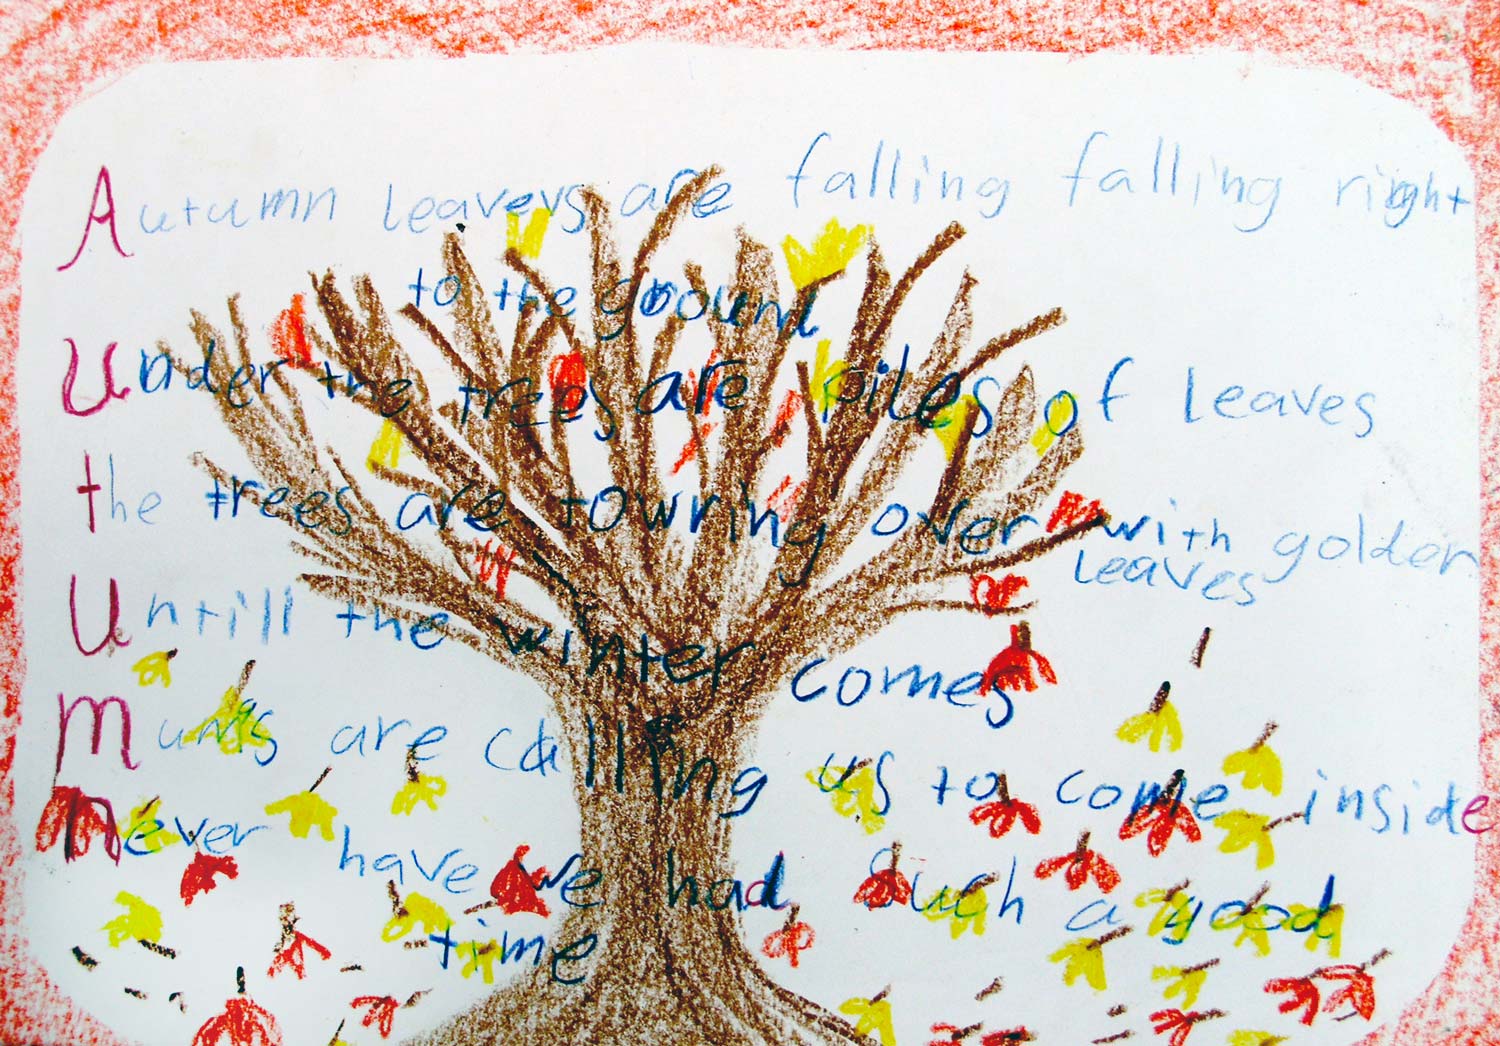 Autumn leaves are falling falling right
to the ground
Under the trees are piles of leaves
the trees are towring over with golden
leaves
Untill the winter comes
mums are calling us to come inside
never have we had such a good
time